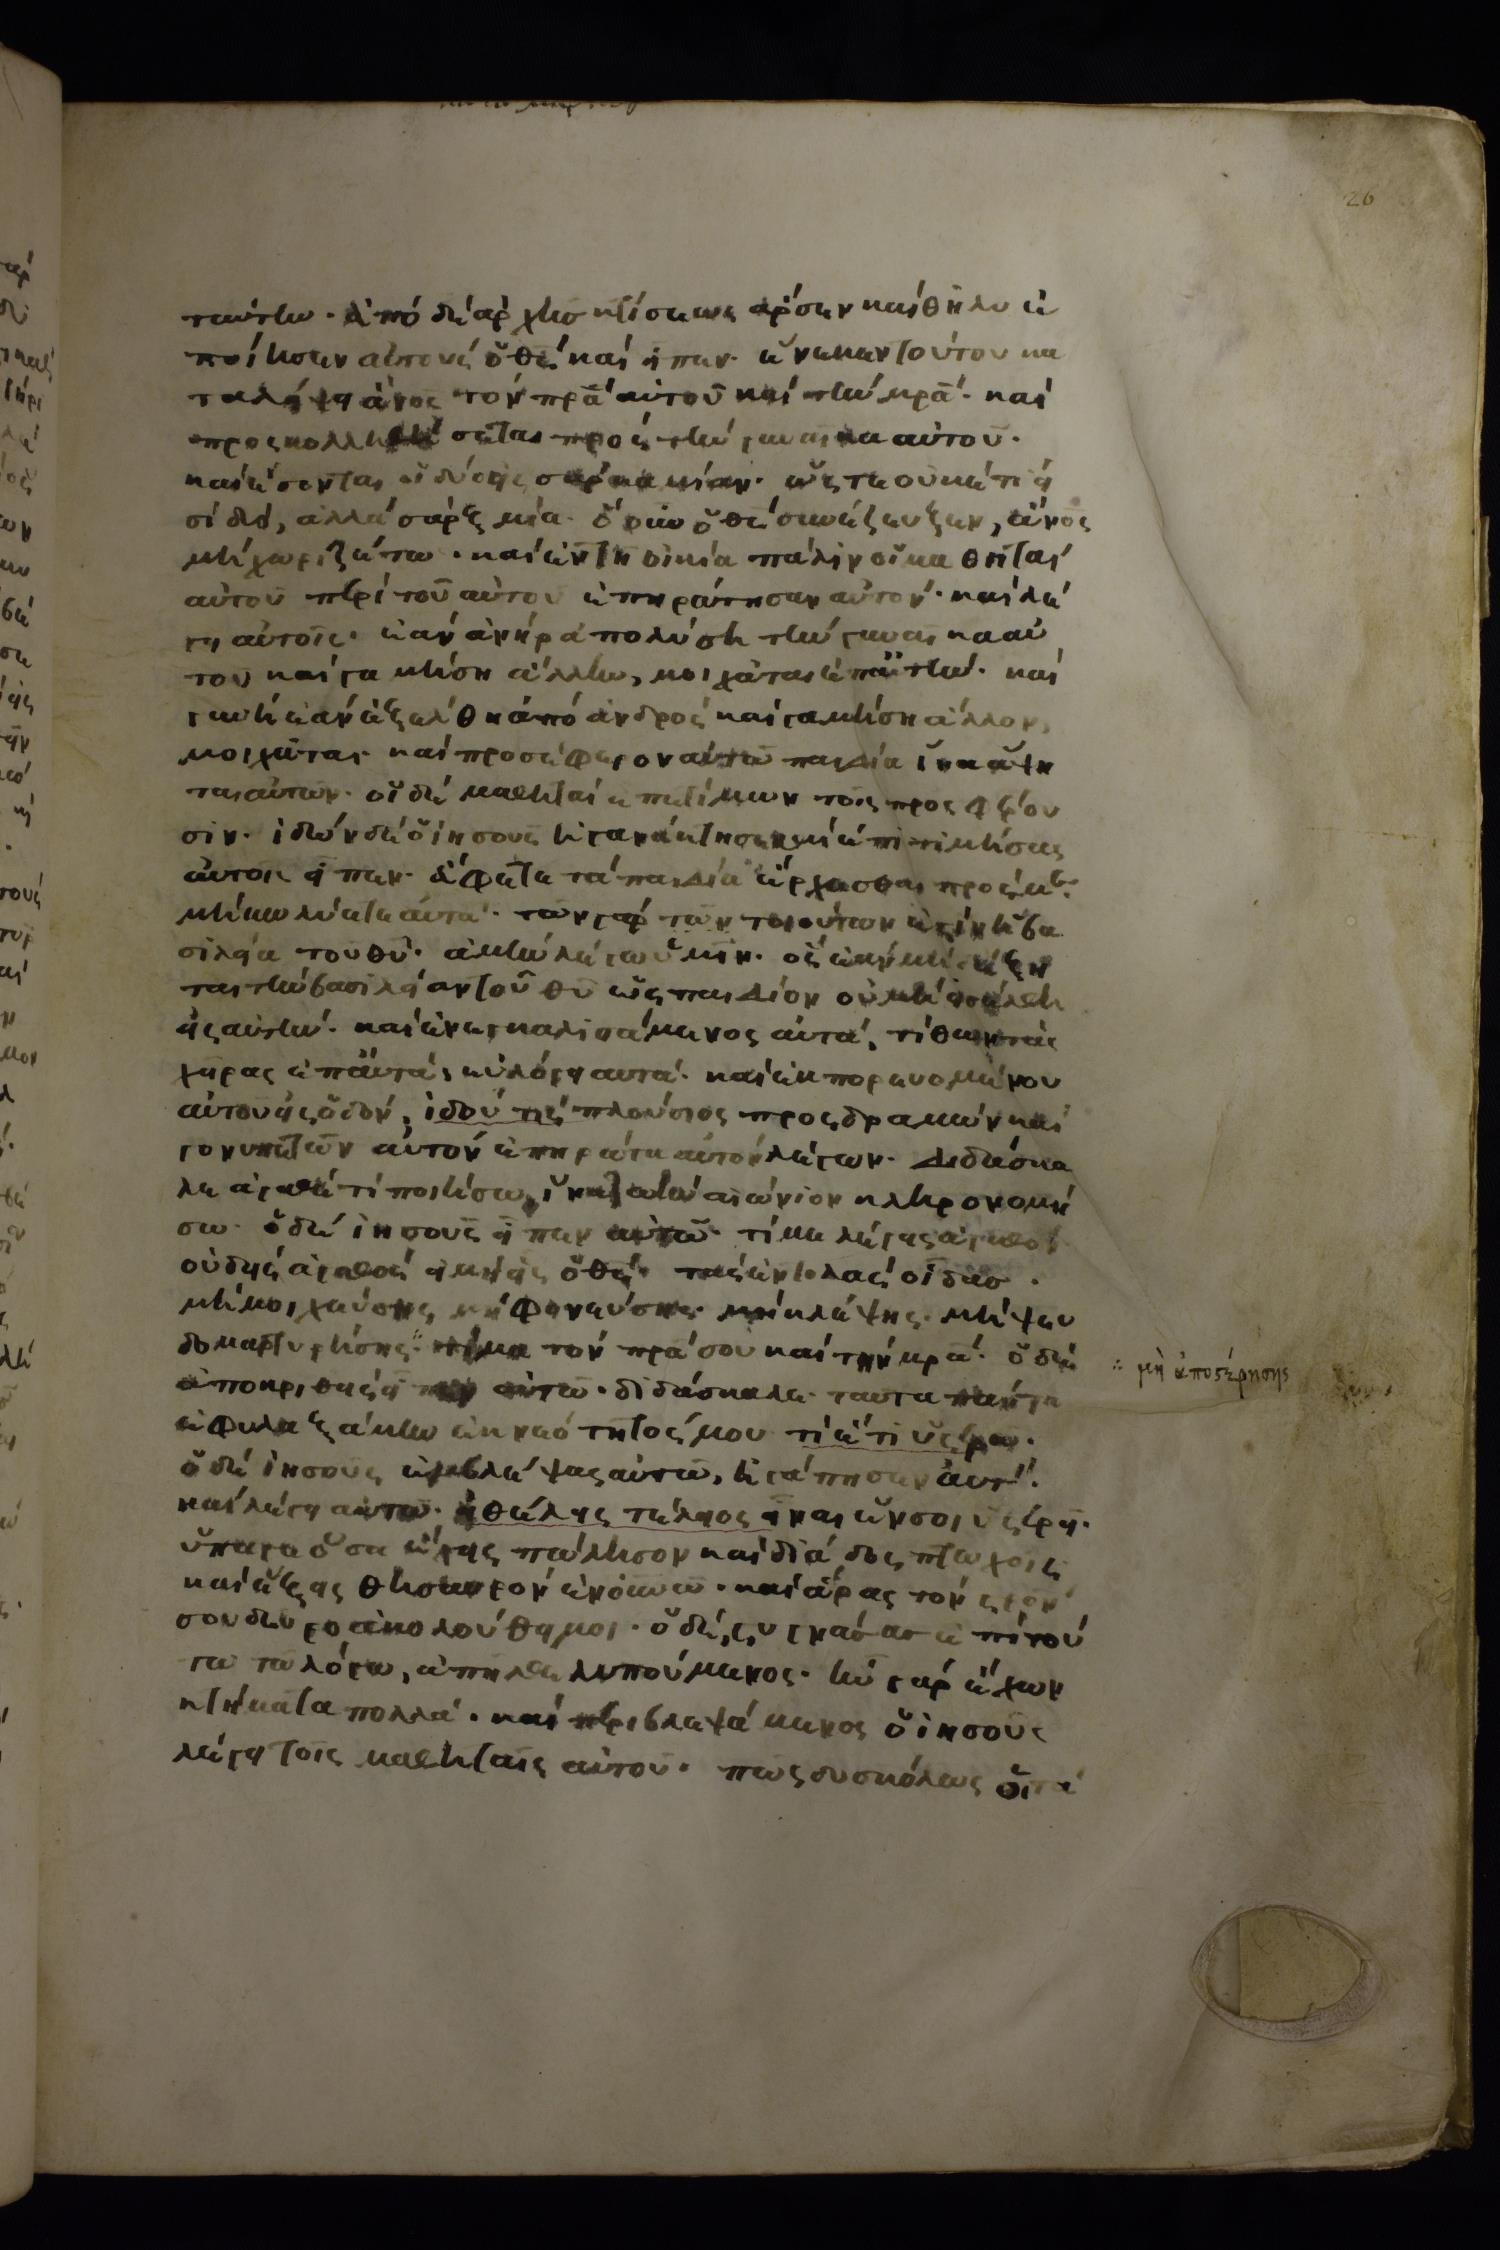 26
ταύτην· ἀπὸ δὲ ἀρχῆσ κτίσεως ἄρσεν καὶ θῆλυ ἐ
ποίησεν αὐτοὺς ὁ θς· καὶ εἶπεν· ἕνεκεν τούτου κα
ταλείψει ἄνος τὸν πρα αὐτοῦ καὶ τὴν μρα· καὶ
προσκολληθήσεται πρὸς τὴν γυναῖκα αὐτοῦ·
καὶ ἔσονται οἱ δύο εἰς σάρκα μίαν· ὥστε οὐκέτι εἰ
σὶ δύο, ἀλλὰ σὰρξ μία· ὃ οὖν ὁ θς συνέζευξεν, ἄνος
μὴ χωριζέτω· καὶ ἐν τῇ οἰκία πάλιν οἱ μαθηταὶ
αὐτοῦ περὶ τοῦ αὐτοῦ ἐπηρώτησαν αὐτόν· καὶ λέ
γει αὐτοῖς· ἐὰν ἀνὴρ ἀπολύση τὴν γυναῖκα αὐ
τοῦ καὶ γαμήση ἄλλην, μοιχᾶται ἐπ αὐτήν· καὶ
γυνὴ ἐὰν ἐξέλθη ἀπὸ ἀνδρὸς καὶ γαμήση ἄλλον,
μοιχᾶται· καὶ προσέφερον αὐτῶ παιδία ἵνα ἅψη
ται αὐτῶν· οἱ δὲ μαθηταὶ ἐπετίμων τοῖς προσφέρου
σιν· ἰδὼν δὲ ὁ ἰησοῦς ἠγανάκτησεν καὶ ἐπιτιμήσας
αὐτοῖς εἶπεν· ἄφετε τὰ παιδία ἔρχεσθαι πρός με·
μὴ κωλύετε αὐτά· τῶν γὰρ τῶν τοιούτων ἐστὶν ἡ βα
σιλεία τοῦ θυ· ἀμὴν λέγω ὑμῖν· ὃς ἐὰν μὴ δέξη
ται τὴν βασιλείαν τοῦ θυ ὡς παιδίον οὐ μὴ εἰσέλθη
εἰς αὐτήν· καὶ ἐναγκαλισάμενος αὐτά, τιθεὶς τὰς
χεῖρας ἐπ αὐτά, εὐλόγει αυτά· καὶ ἐκπορευομένου
αὐτοῦ εἰς ὁδόν, ἰδού τὶς πλούσιος προσδραμὼν καὶ
γονυπετῶν αὐτόν ἐπηρώτα αὐτὸν λέγων· διδάσκα
λε ἀγαθὲ τί ποιήσω, ἵνα ζωὴν αἰώνιον κληρονομή
σω· ὁ δὲ ἰησοῦς εἶπεν αὐτῶ· τί με λέγεις ἀγαθόν·
οὐδεὶς ἀγαθὸς εἰ μὴ εἷς ὁ θς· τὰς ἐντολὰς οἶδασ·
μὴ μοιχεύσης, μὴ φονεύσης· μὴ κλέψης· μὴ ψευ
δομαρτυρήσης·· τίμα τὸν πρα σου καὶ τὴν μρα· ὁ δὲ
∴ μὴ ἀποστερήσης
ἀποκριθεὶς εἶπεν αὐτῶ· διδάσκαλε· ταυτα πάντα
ἐφυλαξάμην ἐκ νεότητός μου τί ἔτι ὑστερῶ·
ὁ δὲ ἰησοῦς ἐμβλέψας αὐτῶ, ἠγάπησεν αυτὸν·
καὶ λέγει αυτω· εἰ θέλεις τέλειος εἶναι ἕν σοι ὑστερεῖ·
ὕπαγε ὅσα ἔχεις πώλησον καὶ διάδος πτωχοῖς
καὶ ἕξεις θησαυρὸν ἐν οὐνῶ· καὶ ἄρας τὸν στρόν
σου δεῦρο ἀκολούθει μοι· ὁ δὲ, στυγνάσας ἐπὶ τού
τω τῶ λόγω, ἀπῆλθε λυπούμενος· ἦν γὰρ ἔχων
κτήματα πολλά· καὶ περιβλεψάμενος ὁ ἰησοῦς
λέγει τοῖς μαθηταῖς αὐτοῦ· πῶς δυσκόλως οἱ τὰ